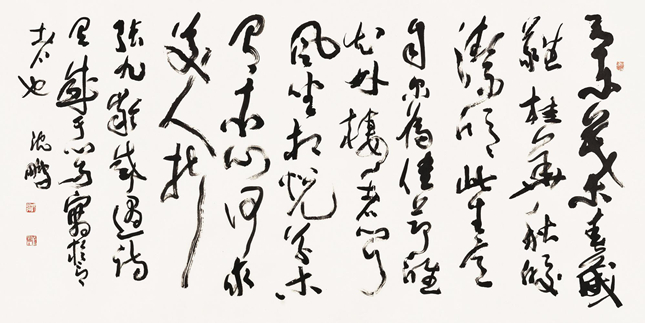 兰叶春葳
蕤桂华秋皎
洁欣欣此生意
自尔为佳节谁
知林栖者闻
风坐相悦草木
有本心何求
美人折
张九龄感遇诗
沈鹏